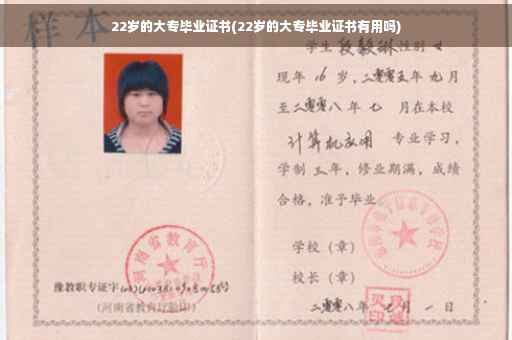 22岁的大专毕业证书(22岁的大专毕业证书有用吗)
样本
学生段毅琳性别女
现年16岁,二零零五年九月
至二零零八年七月在本校
计算机应用 专业学习,
学制三年,修业期满,成绩
合格,准予毕业
学校(章)
校长(章)
二零零八年七月一日
河南省教育厅
豫教职专证字
(河南省教育厅验印)